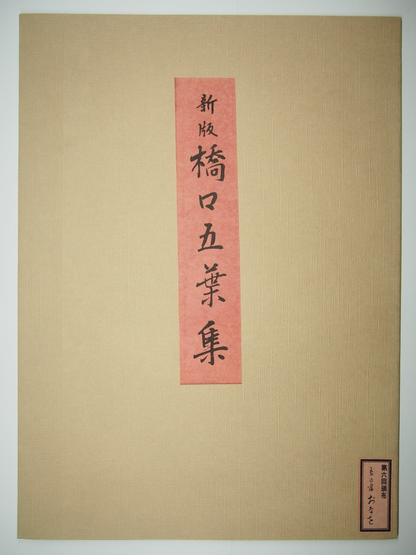 新版
橋口五葉集
第六回頒布